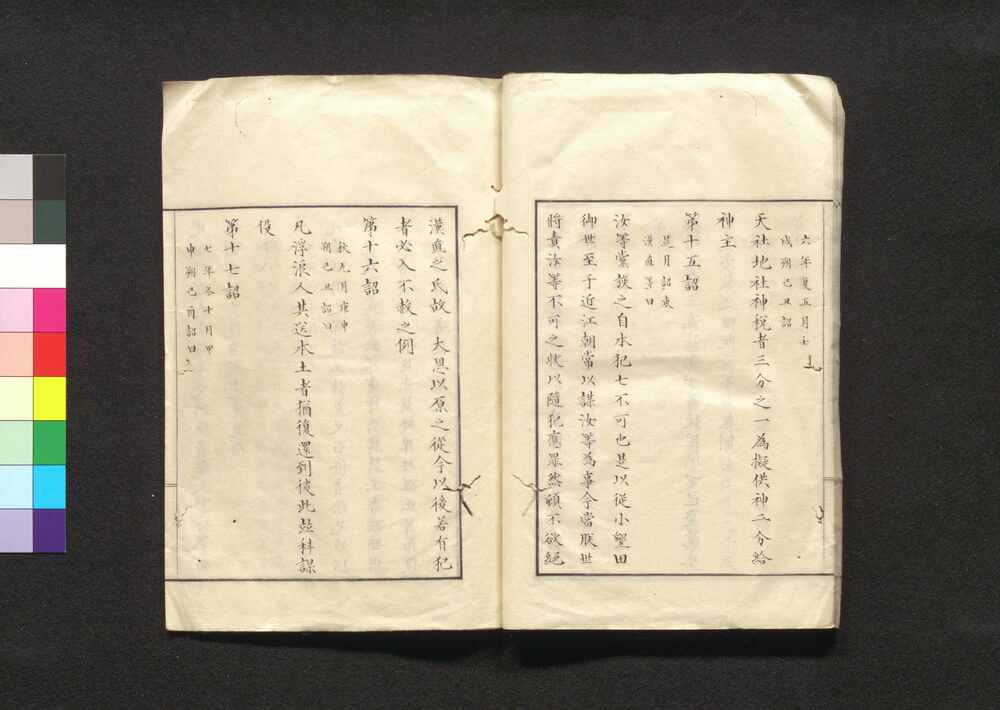 六年夏五月壬
戌朔己丑詔
天社地社神税者三分之一為擬供神二分給
神主
第十五詔
是月詔東
漢直等曰
汝等黨族之自本犯七不可也是以従小墾田
御世至于近江朝常以謀汝等為事今當朕世
将責汝等不可之状以随犯應罪然頓不欲絶
漢直之氏故大恩以原之従今以後若有犯
者必入不赦之例
第十六詔
秋九月庚申
朔己丑詔曰
凡浮浪人其送本土者猶復還到彼此並科課
役
第十七詔
七年冬十月甲
申朔己酉詔曰